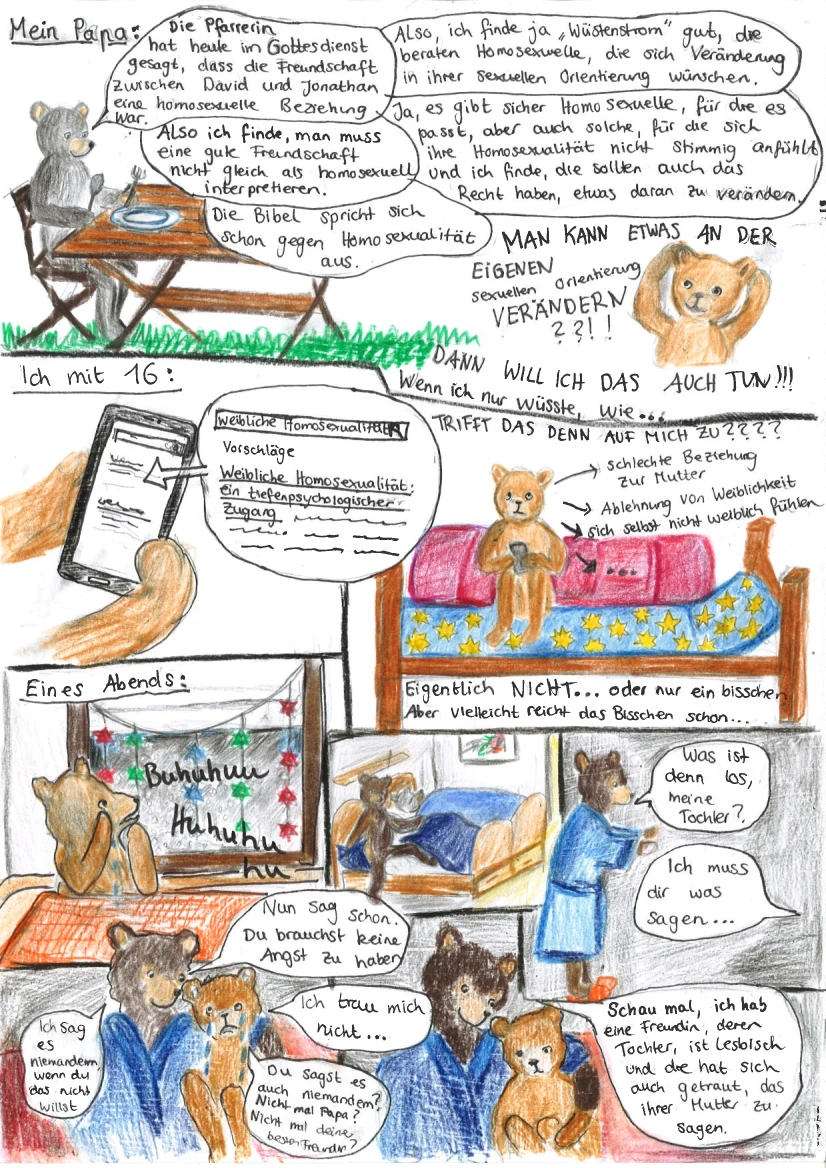 Mein Papa:
Die Pfarrerin
hat heute im Gottesdienst
gesagt, dass die Freundschaft
zwischen David und Jonathan
eine homosexuelle Beziehung
war.
Also ich finde, man muss
eine gute Freundschaft
nicht gleich als homosexuell
interpretieren.
Die Bibel spricht sich
schon gegen Homosexualität
aus.
Also, ich finde ja „Wüstenstrom" gut, die
beraten Homosexuelle, die sich Veränderung
in ihrer sexuellen Orientierung wünschen.
Ja, es gibt sicher Homosexuelle, für die es
passt, aber auch solche, für die sich
ihre Homosexualität nicht stimmig anfühlt
und ich finde, die sollten auch das
Recht haben, etwas daran zu verändern.
MAN KANN ETWAS AN DER
EIGENEN
sexuellen Orientierung
VERÄNDERN
??!!
DANN WILL ICH DAS AUCH TUN!!!
Wenn ich nur wüsste, wie...
Ich mit 16:
Weibliche Homosexualität
Vorschläge
Weibliche Homosexualität:
ein tiefenpsychologischer
Zugang
TRIFFT DAS DENN AUF MICH ZU????
→ schlechte Beziehung
zur Mutter
→ Ablehnung von Weiblichkeit
→ sich selbst nicht weiblich fühlen
→ ...
Eigentlich NICHT... oder nur ein bisschen.
Aber vielleicht reicht das Bisschen schon...
Eines Abends:
Buhuhuu
Huhuhu
hu
Was ist
denn los,
meine
Tochter?
Ich muss
dir was
sagen...
Nun sag schon.
Du brauchst keine
Angst zu haben
Ich trau mich
nicht...
Ich sag
es
niemandem,
wenn du
das nicht
willst
Du sagst es
auch niemandem?
Nicht mal Papa?
Nicht mal deiner
besten Freundin?
Schau mal, ich hab
eine Freundin, deren
Tochter, ist lesbisch
und die hat sich
auch getraut, das
ihrer Mutter zu
sagen.